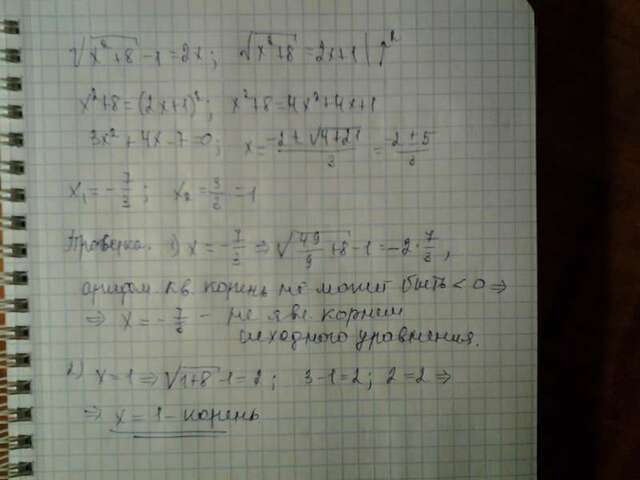 √(x²+8) -1 = 2x; √(x²+8) = 2x+1 |↑²
x²+8 = (2x+1)²; x²+8 = 4x²+4x+1
3x²+4x-7=0; x = (-2±√(4+21))/3 = (-2±5)/3
x₁ = -7/3; x₂ = 3/3 = 1
Проверка. 1) x = -7/3 ⇒ √(49/9+8) -1 = -2·7/3,
арифм. кв. корень не может быть < 0 ⇒
⇒ x = -7/3 - не явл. корнем
исходного уравнения.
2) x=1 ⇒ √(1+8) -1=2; 3-1=2; 2=2 ⇒
⇒ x = 1 - корень